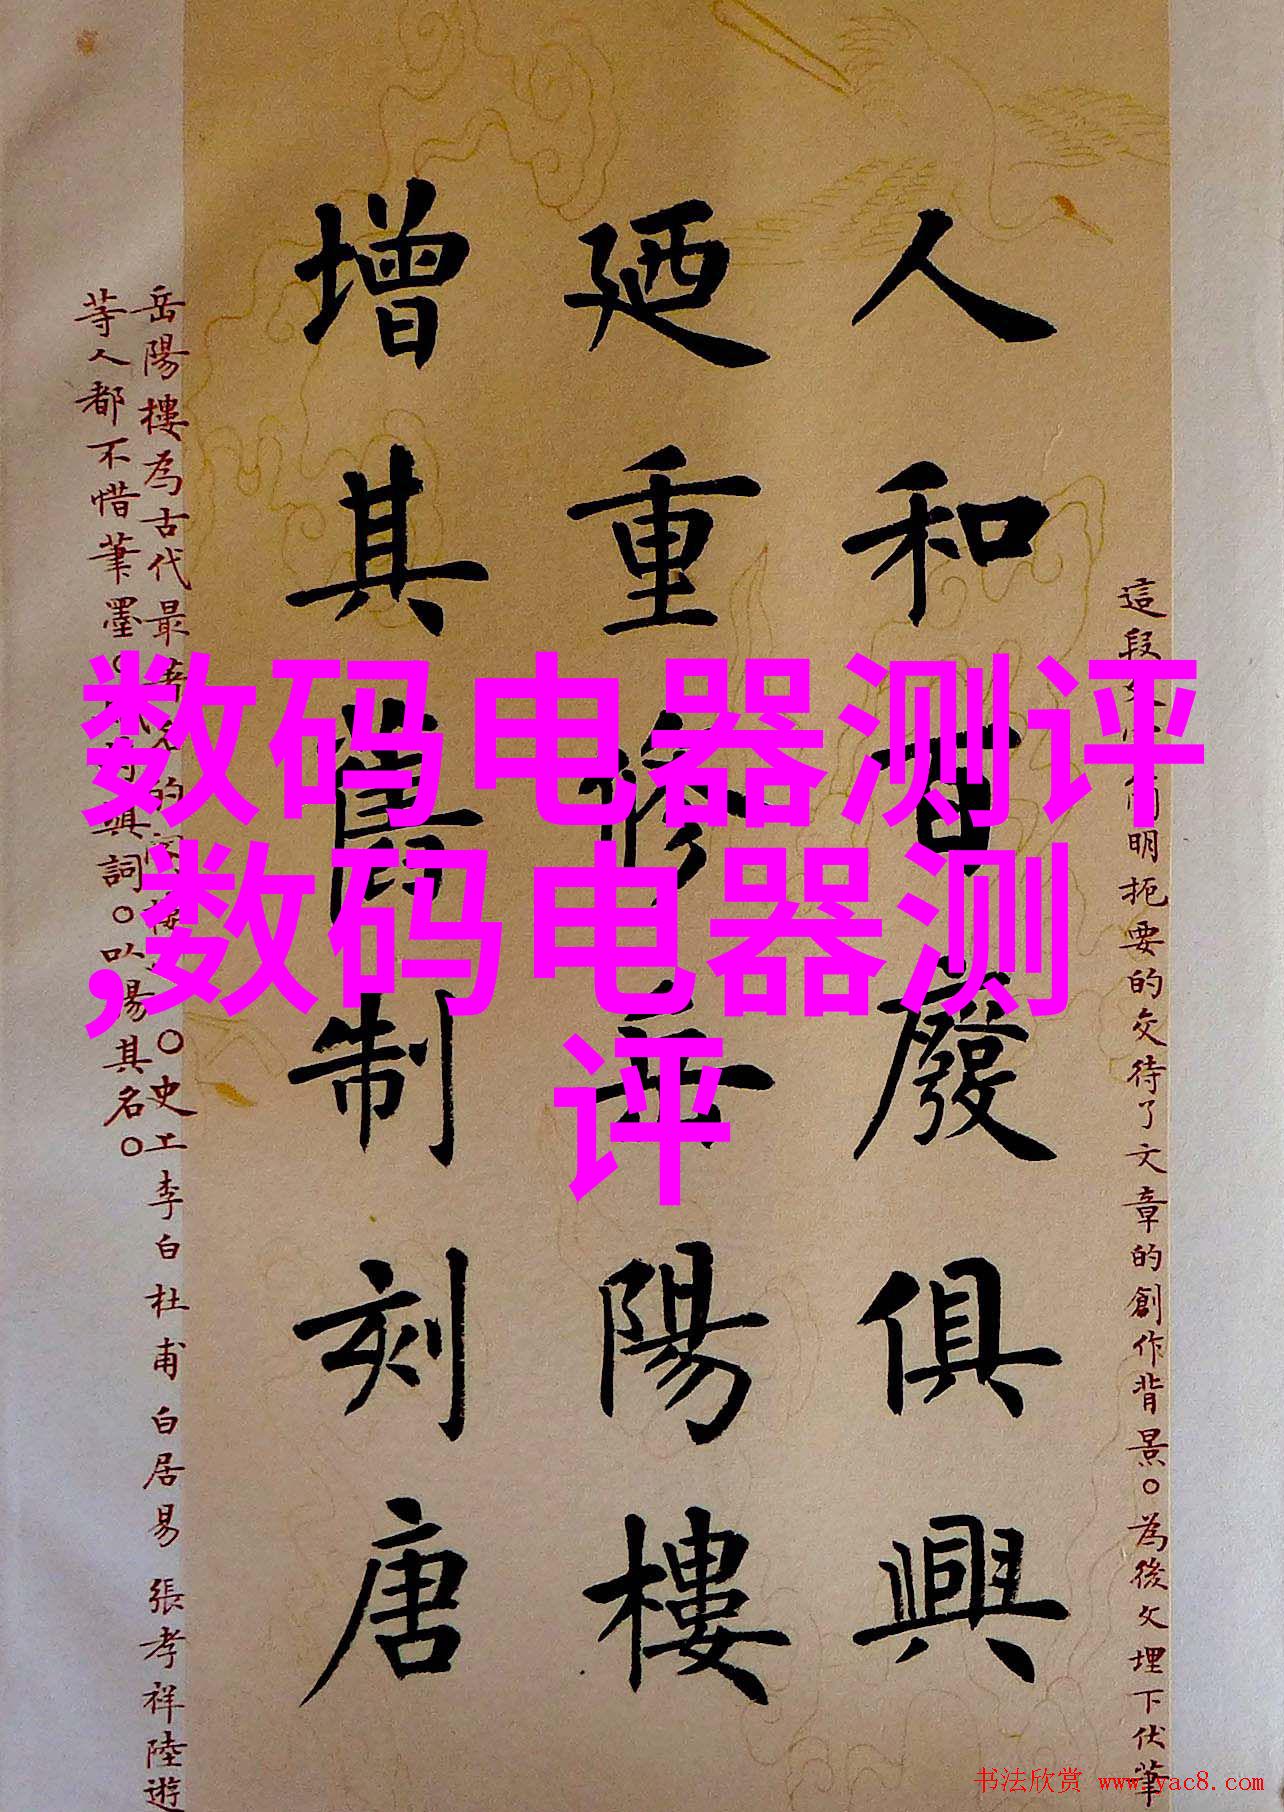 人和百廢俱興
廼重修岳陽樓
增其舊制刻唐
這段文
明扼要的交待了文章的創作背景。為後文埋下伏筆
岳陽樓為古代最著名的
。史上李白杜甫白居易張孝祥陸遊
等人都不惜筆墨。
詞。以揚其名。
数码电器测评
,数码电器测
评
书法欣赏 www.yac8.com